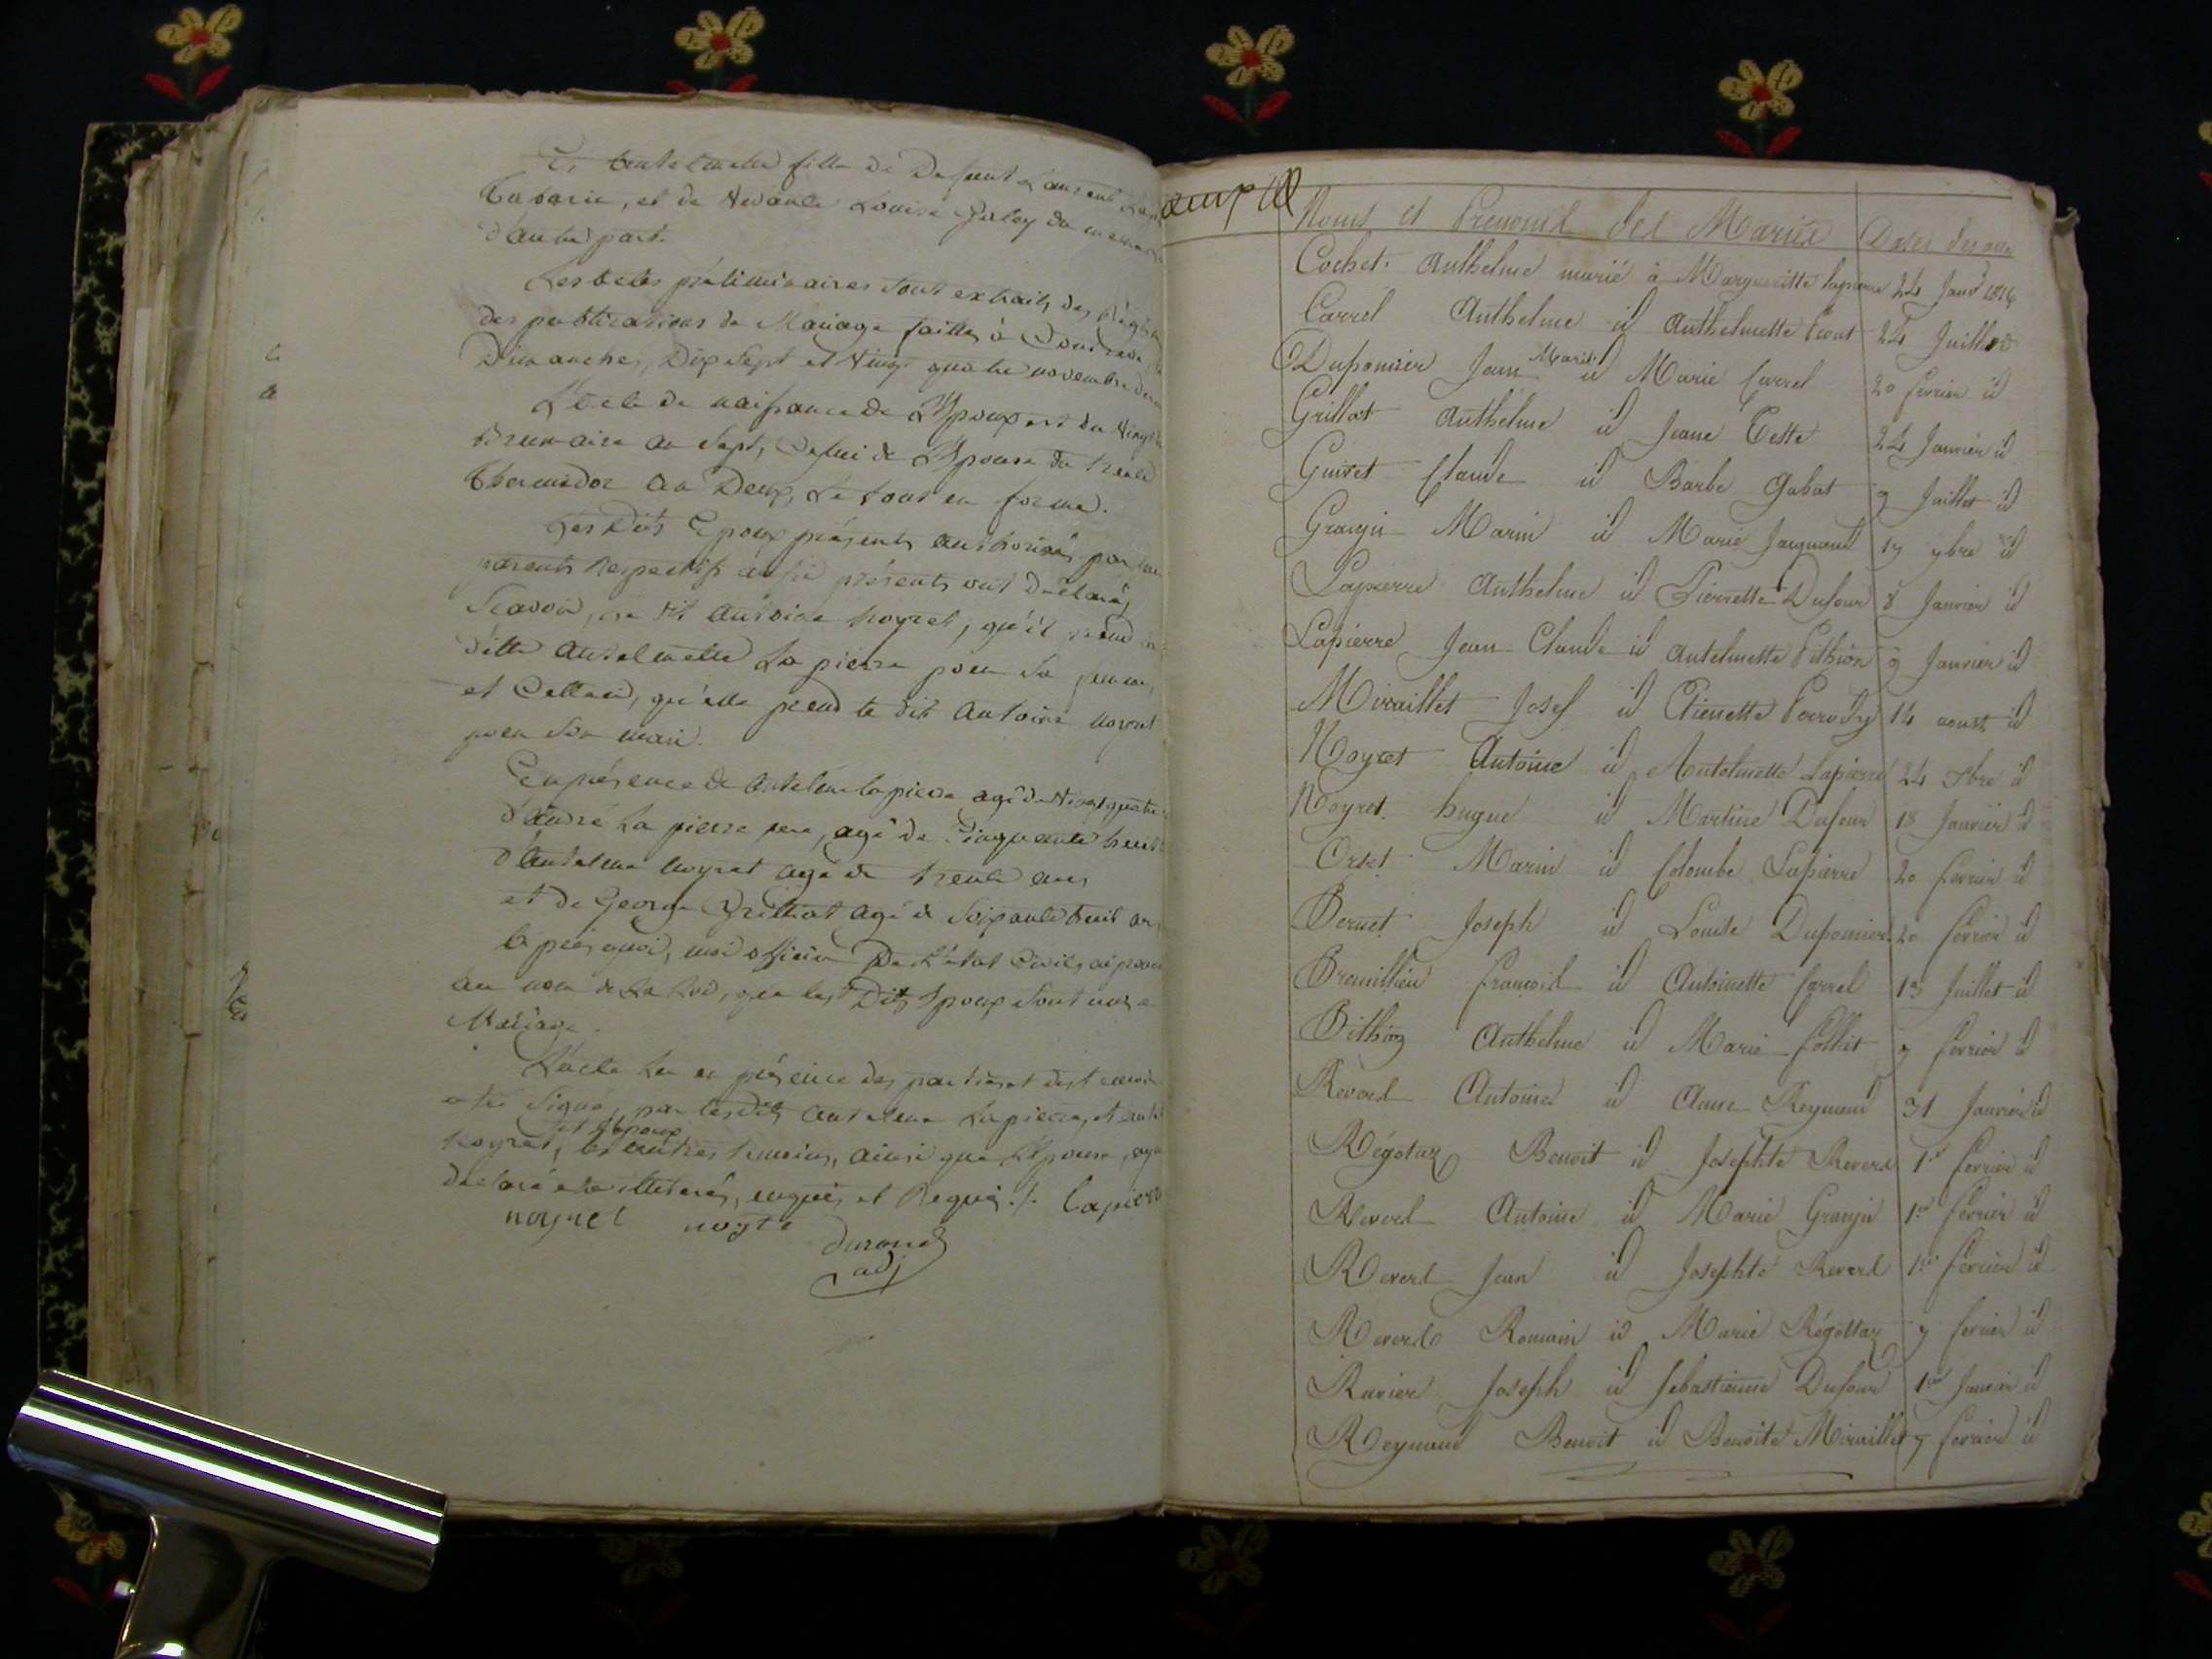 Et Antelmette fille de Defunt Laurent
et de veuve Louise
d'autre part.
Les actes préliminaires sont extraits des
des publications de Mariage faittes à
Dimanches, Dix Sept et Vingt quatre novembre
L'acte de naissance de L'Epoux est du Vingt
Brumaire an Sept, Celui de L'Epouse du treize
Thermidor an Deux, Le tout en forme.
Les Dits Epoux présents authorisés par
parents Respectifs aussi présents ont Déclaré,
Scavoir, Le dit Antoine Noyret, qu'il prend
ditte Antelmette La pierre pour sa femme,
et Celleci, qu'elle prend le dit Antoine noyret
pour son mari.
En présence de Antelme lapierre agé de Vingt quatre
d'André La pierre agé de Cinquante huit
d'Antelme noyret agé de trente ans
et de George Grilliat agé de Soixante huit ans
après quoi, moi officier De L'état Civil, ai
au nom de La Loi, que les Dits Epoux sont unis
Mariage.
L'acte Lu en présence des parties et des
a été Signé, par les dits Antelme Lapierre, et
et L'Epoux
noyret, les autres temoins, ainsi que L'Epouse,
declaré etre illiterés, enquis et Requis ./. Lapierre
noyret noyre
durand
adj
Noms et Prenoms des Mariés Dates des actes
Cochet Anthelme marié à Margueritte lapierre 24 Janv 1816
Carrel Anthelme id Anthelmette 24 Juillet id
Marie
Duponier Jean id Marie Carrel 20 fevrier id
Grillat Anthelme id Jeane Tette 24 Janvier id
Guiret Claude id Barbe Gabat 9 Juillet id
Granjn Marin id Marie Jacquand 17 9bre id
Lapierre Anthelme id Pierrette Dufour 8 Janvier id
Lapierre Jean Claude id Antelmette Pithion 9 Janvier id
Miraillet Josef id Etienette Perrody 14 aoust id
Noyret Antoine id Antelmette Lapierre 24 Xbre id
Noyret hugue id Martine Dufour 18 Janvier id
Orset Marin id Colombe Lapierre 20 fevrier id
Bernet Joseph id Louise Duponier 20 fevrier id
Breuillien françois id Antoinette Carrel 13 Juillet id
Pithion Anthelme id Marie Colliet 7 fevrier id
Reverd Antoine id Anne Reynaud 31 Janvier id
Régotaz Benoit id Josephte Reverd 1er fevrier id
Reverd Antoine id Marie Granjn 1er fevrier id
Reverd Jean id Josephte Reverd 1er fevrier id
Reverd Romain id Marie Régottaz 7 fevrier id
Ravier Joseph id Sebastienne Dufour 1er Janvier id
Reynaud Benoit id Benoite Miraillet 7 fevrier id